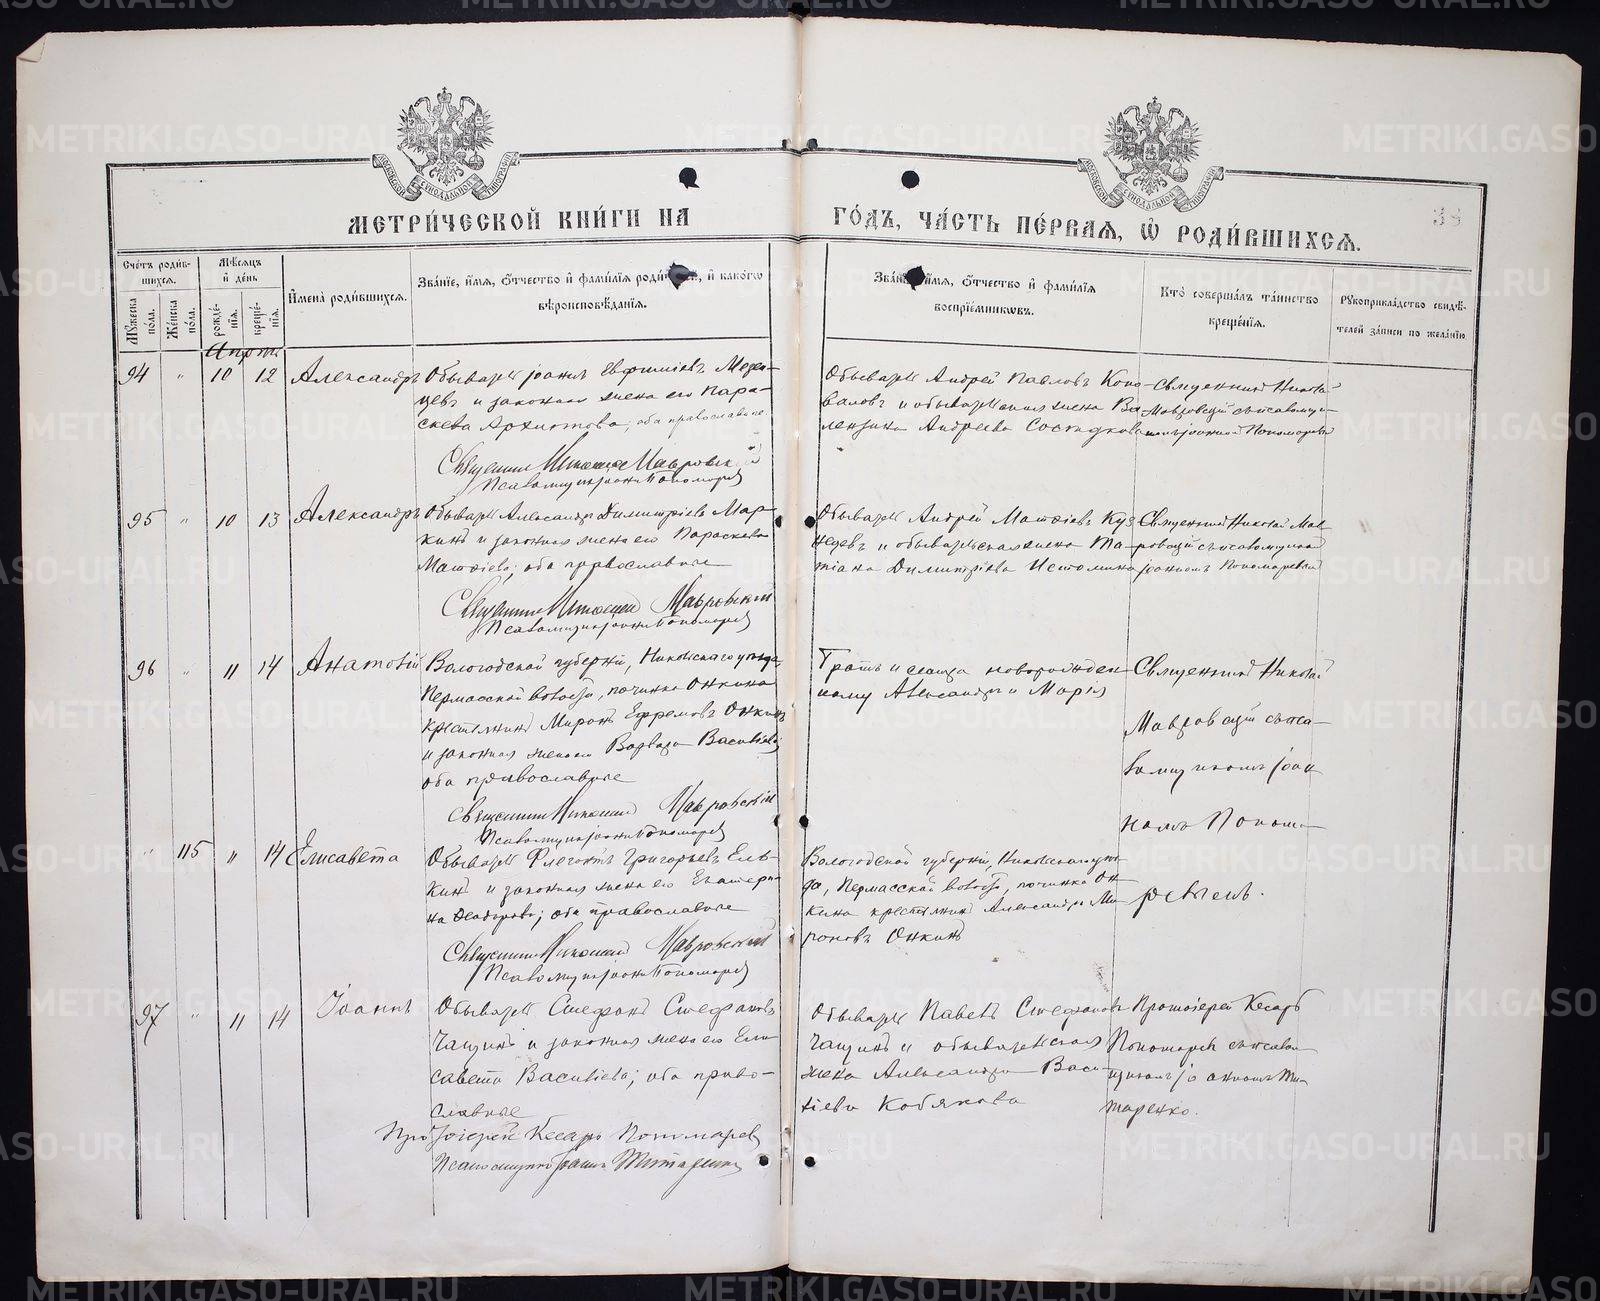 МЕТРИЧЕСКОЙ КНИГИ НА ГОДЪ, ЧАСТЬ ПЕРВАЯ, Ѡ РОДИВШИХСЯ.
38
Счетъ родившихся.
Мужеска пола.
Женска пола.
Мѣсяцъ и день
рожденія.
крещенія.
Имена родившихся.
Званіе, имя, отчество и фамилія родителей, и какого вѣроисповѣданія.
Званіе, имя, отчество и фамилія воспріемниковъ.
Кто совершалъ таинство крещенія.
Рукоприкладство свидѣтелей записи по желанію.
94 " 10 12 Александръ
Обыватель Іоаннъ Евфиміевъ
и законная жена его Пара-
скева оба православные.
Священникъ Николай Мавровскій
Псаломщикъ Іоаннъ Пономаревъ
Обыватель Андрей Павловъ Коно-
валовъ и обывательская жена Ва-
Андреева
Священникъ Николай
Мавровскій съ псаломщи-
комъ Іоанномъ Пономаревымъ
95 " 10 13 Александръ
Обыватель Александръ Димитріевъ Мар-
кинъ и законная жена его Параскева
Матѳіева; оба православные
Священникъ Николай Мавровскій
Псаломщикъ Іоаннъ Пономаревъ
Обыватель Андрей Матѳіевъ Куз-
нецовъ и обывательская жена Та-
тіана Димитріева Истомина
Священникъ Николай Мав-
ровскій съ псаломщикомъ
Іоанномъ Пономаревымъ
96 " 11 14 Анатолій
Вологодской губерніи, Никольскаго уѣзда,
Пермасской волости, починка Онкина
крестьянинъ Миронъ Ефремовъ Онкинъ
и законная жена его Варвара Василіева;
оба православные
Священникъ Николай Мавровскій
Псаломщикъ Іоаннъ Пономаревъ
Братъ и сестра новорожден-
ному Александръ и Марія
Священникъ Николай
Мавровскій съ пса-
ломщикомъ Іоан-
номъ Понома-
ревымъ.
" 115 11 14 Елисавета
Обыватель Флегонтъ Григорьевъ Ель-
кинъ и законная жена его Екатери-
на Ѳеодорова; оба православные
Священникъ Николай Мавровскій
Псаломщикъ Іоаннъ Пономаревъ
Вологодской губерніи, Никольскаго уѣз-
да, Пермасской волости, починка Он-
кина крестьянинъ Александръ Ми-
роновъ Онкинъ
97 " 11 14 Іоаннъ
Обыватель Стефанъ Стефановъ
Чащинъ и законная жена его Ели-
савета Василіева; оба право-
славные
Протоіерей Кесарь Пономаревъ
Псаломщикъ Іоаннъ Титаренко
Обыватель Павелъ Стефановъ
Чащинъ и обывательская
жена Александра Васи-
ліева Кобякова
Протоіерей Кесарь
Пономаревъ съ псалом-
щикомъ Іоанномъ Ти-
таренко.
METRIKI.GASO-URAL.RU